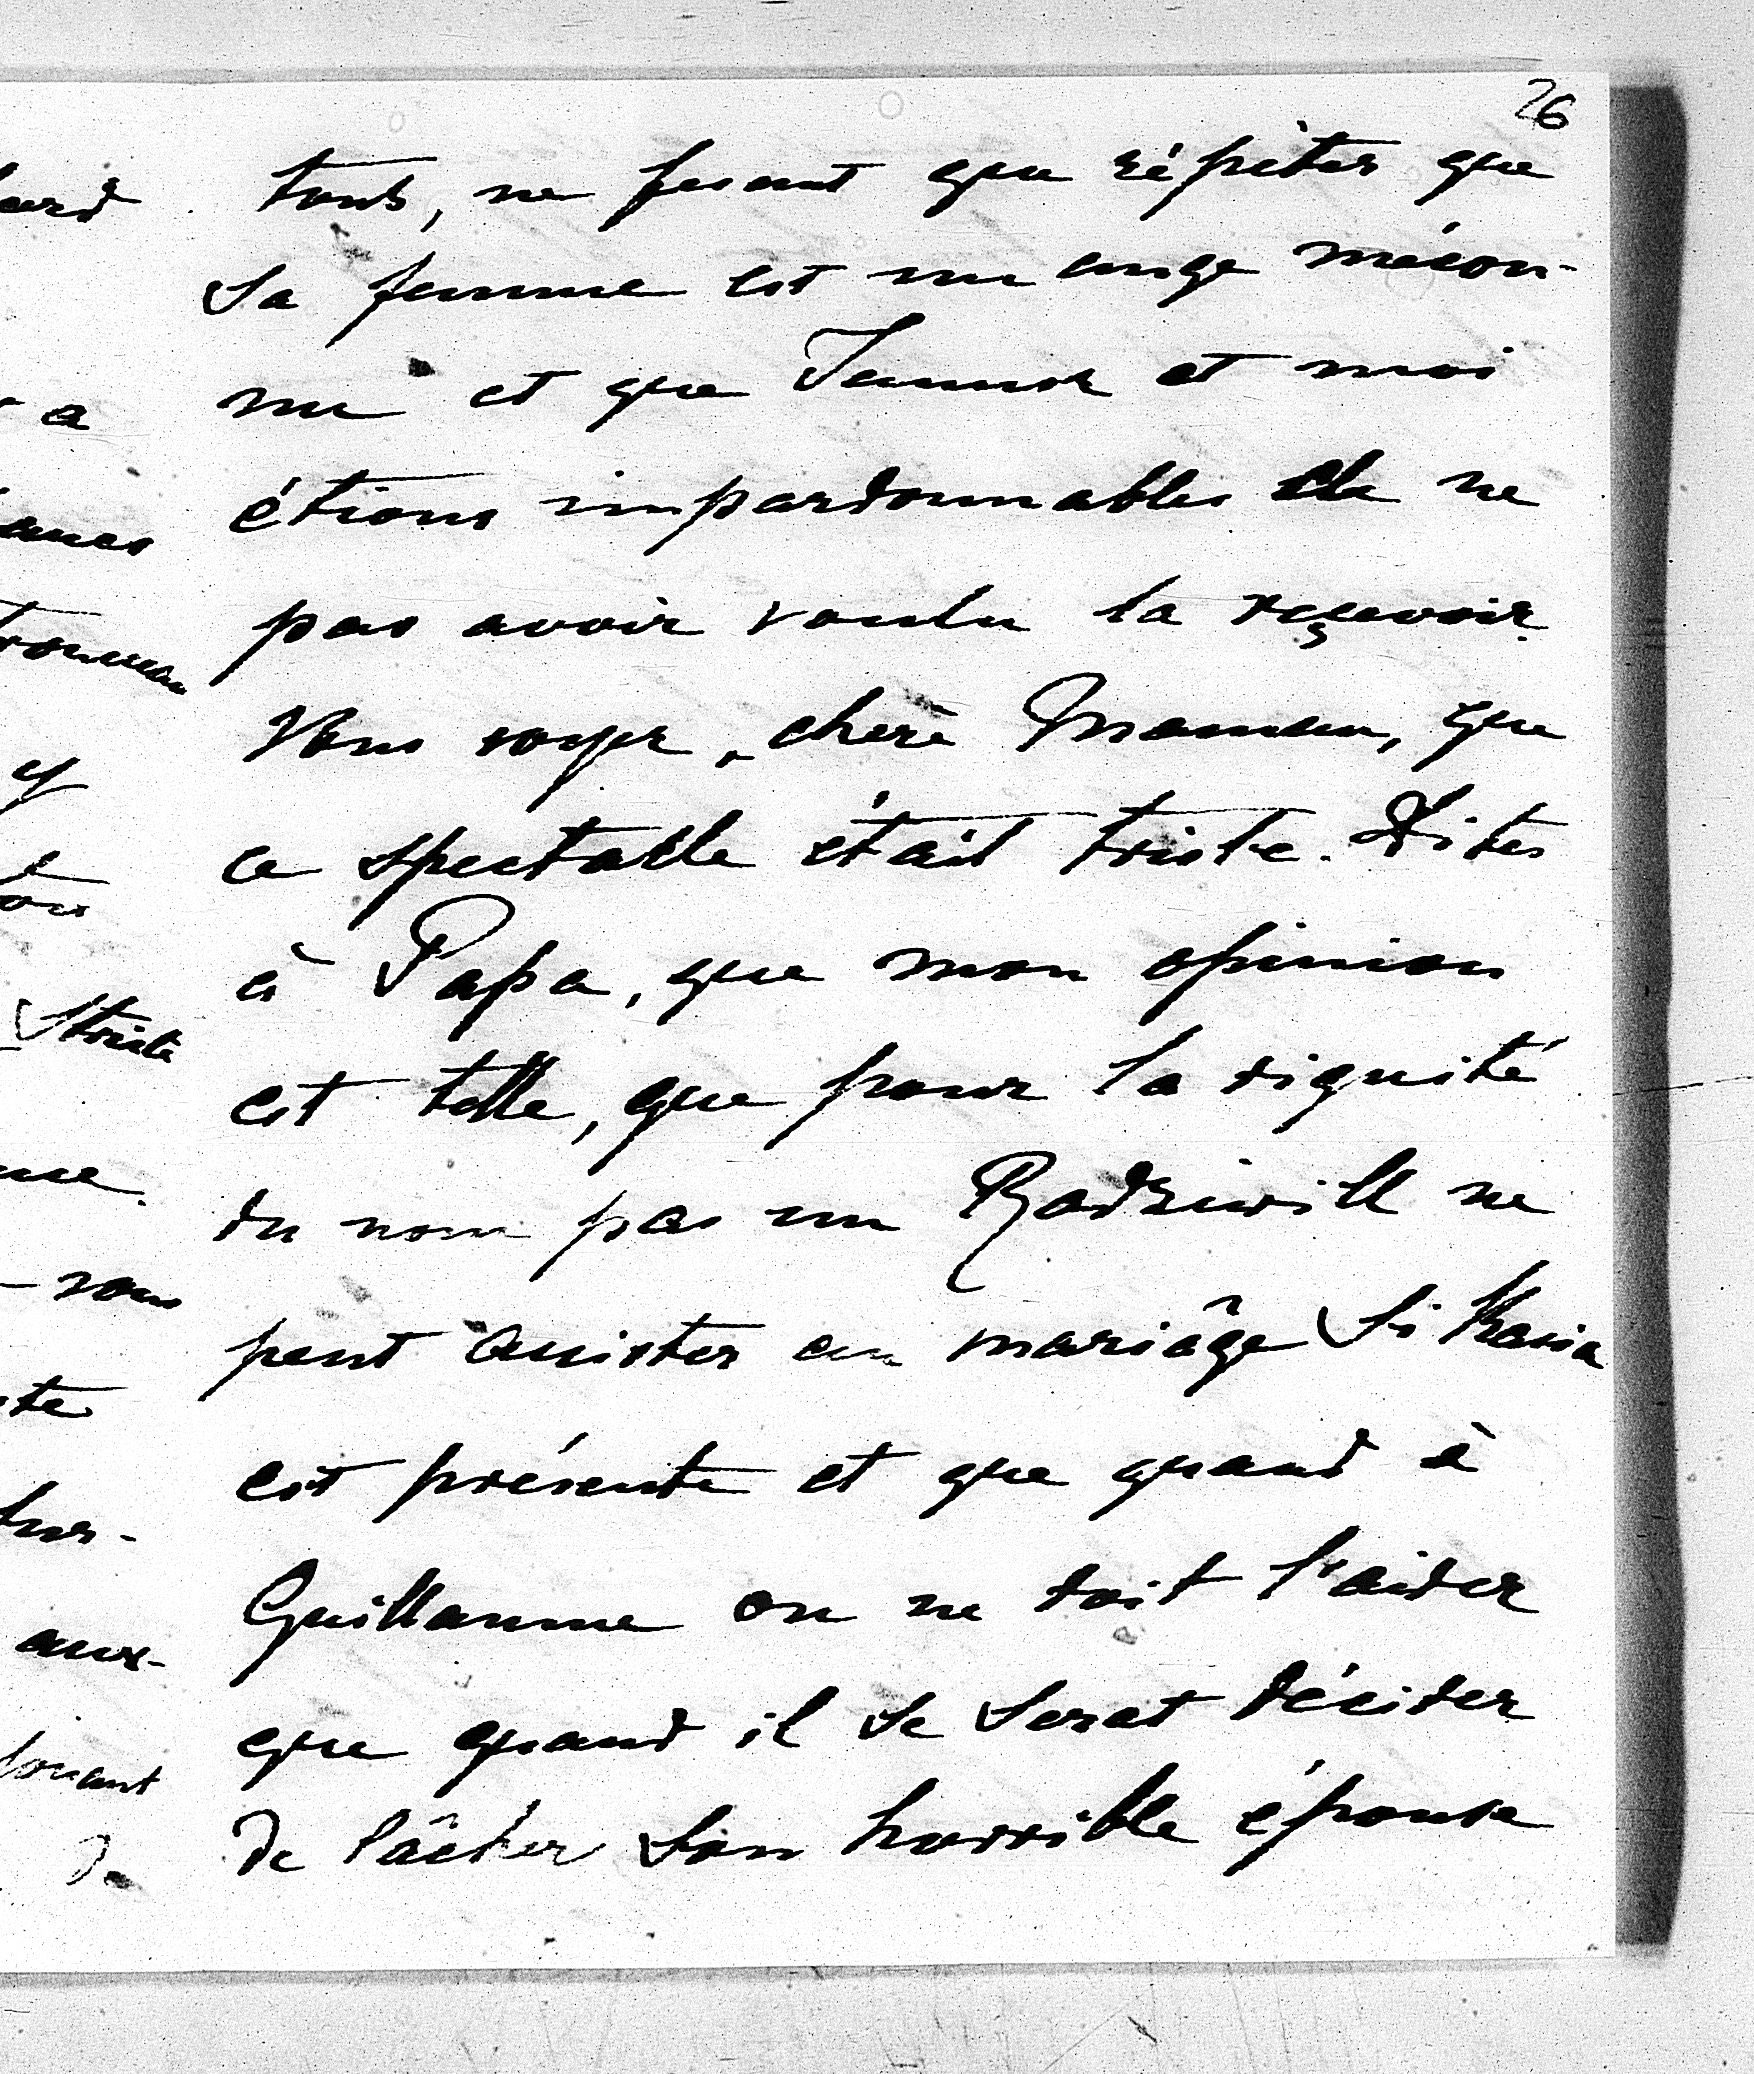 26
tous, ne fesant que répéter que
sa femme est un ange mécon-
nu et que Jeannot et moi
étions impardonnables de ne
pas avoir voulu la reçevoir.
Vous voyez, chère Maman, que
ce spectacle était triste. Dites
à Papa, que mon opinion
est telle, que pour la dignité
du nom pas un Radziwill ne
peut assister au mariâge si Kasia
est présente et que quand à
Guillaume on ne doit l'aider
que quand il se serat décider
de lâcher son horrible épouse